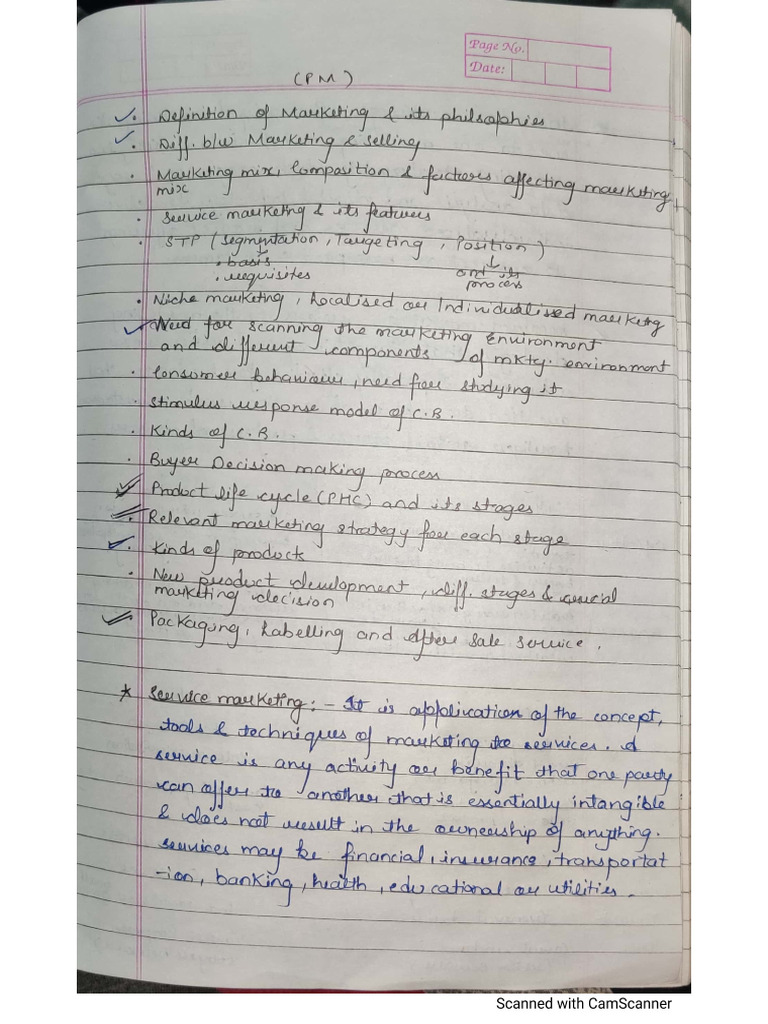 Page No.
Date:
(PM)
• Definition of Marketing & its philsophies
• Diff. b/w Marketing & selling
• Marketing mix, Composition & factors affecting marketing
mix
• Service marketing & its features
• STP (Segmentation, Targeting, Position)
• basis
• requisites
and its
process
• Niche marketing, Localised or Individualised marketing
• Need for scanning the marketing environment
and different components of mktg. environment
• Consumer behaviour, need for studying it
• Stimulus response model of C.B.
• Kinds of C.B..
• Buyer Decision making process
• Product life cycle (PHC) and its stages
• Relevant marketing strategy for each stage
• Kinds of products
• New product development, diff. stages & crucial
marketing decision
Packaging, Labelling and After sale service.
* Service marketing: - It is application of the concept,
tools & techniques of marketing to services. A
service is any activity or benefit that one party
can offer to another that is essentially intangible
& does not result in the ownership of anything.
services may be financial, insurance, transportat
-ion, banking, health, educational or utilities.
Scanned with CamScanner